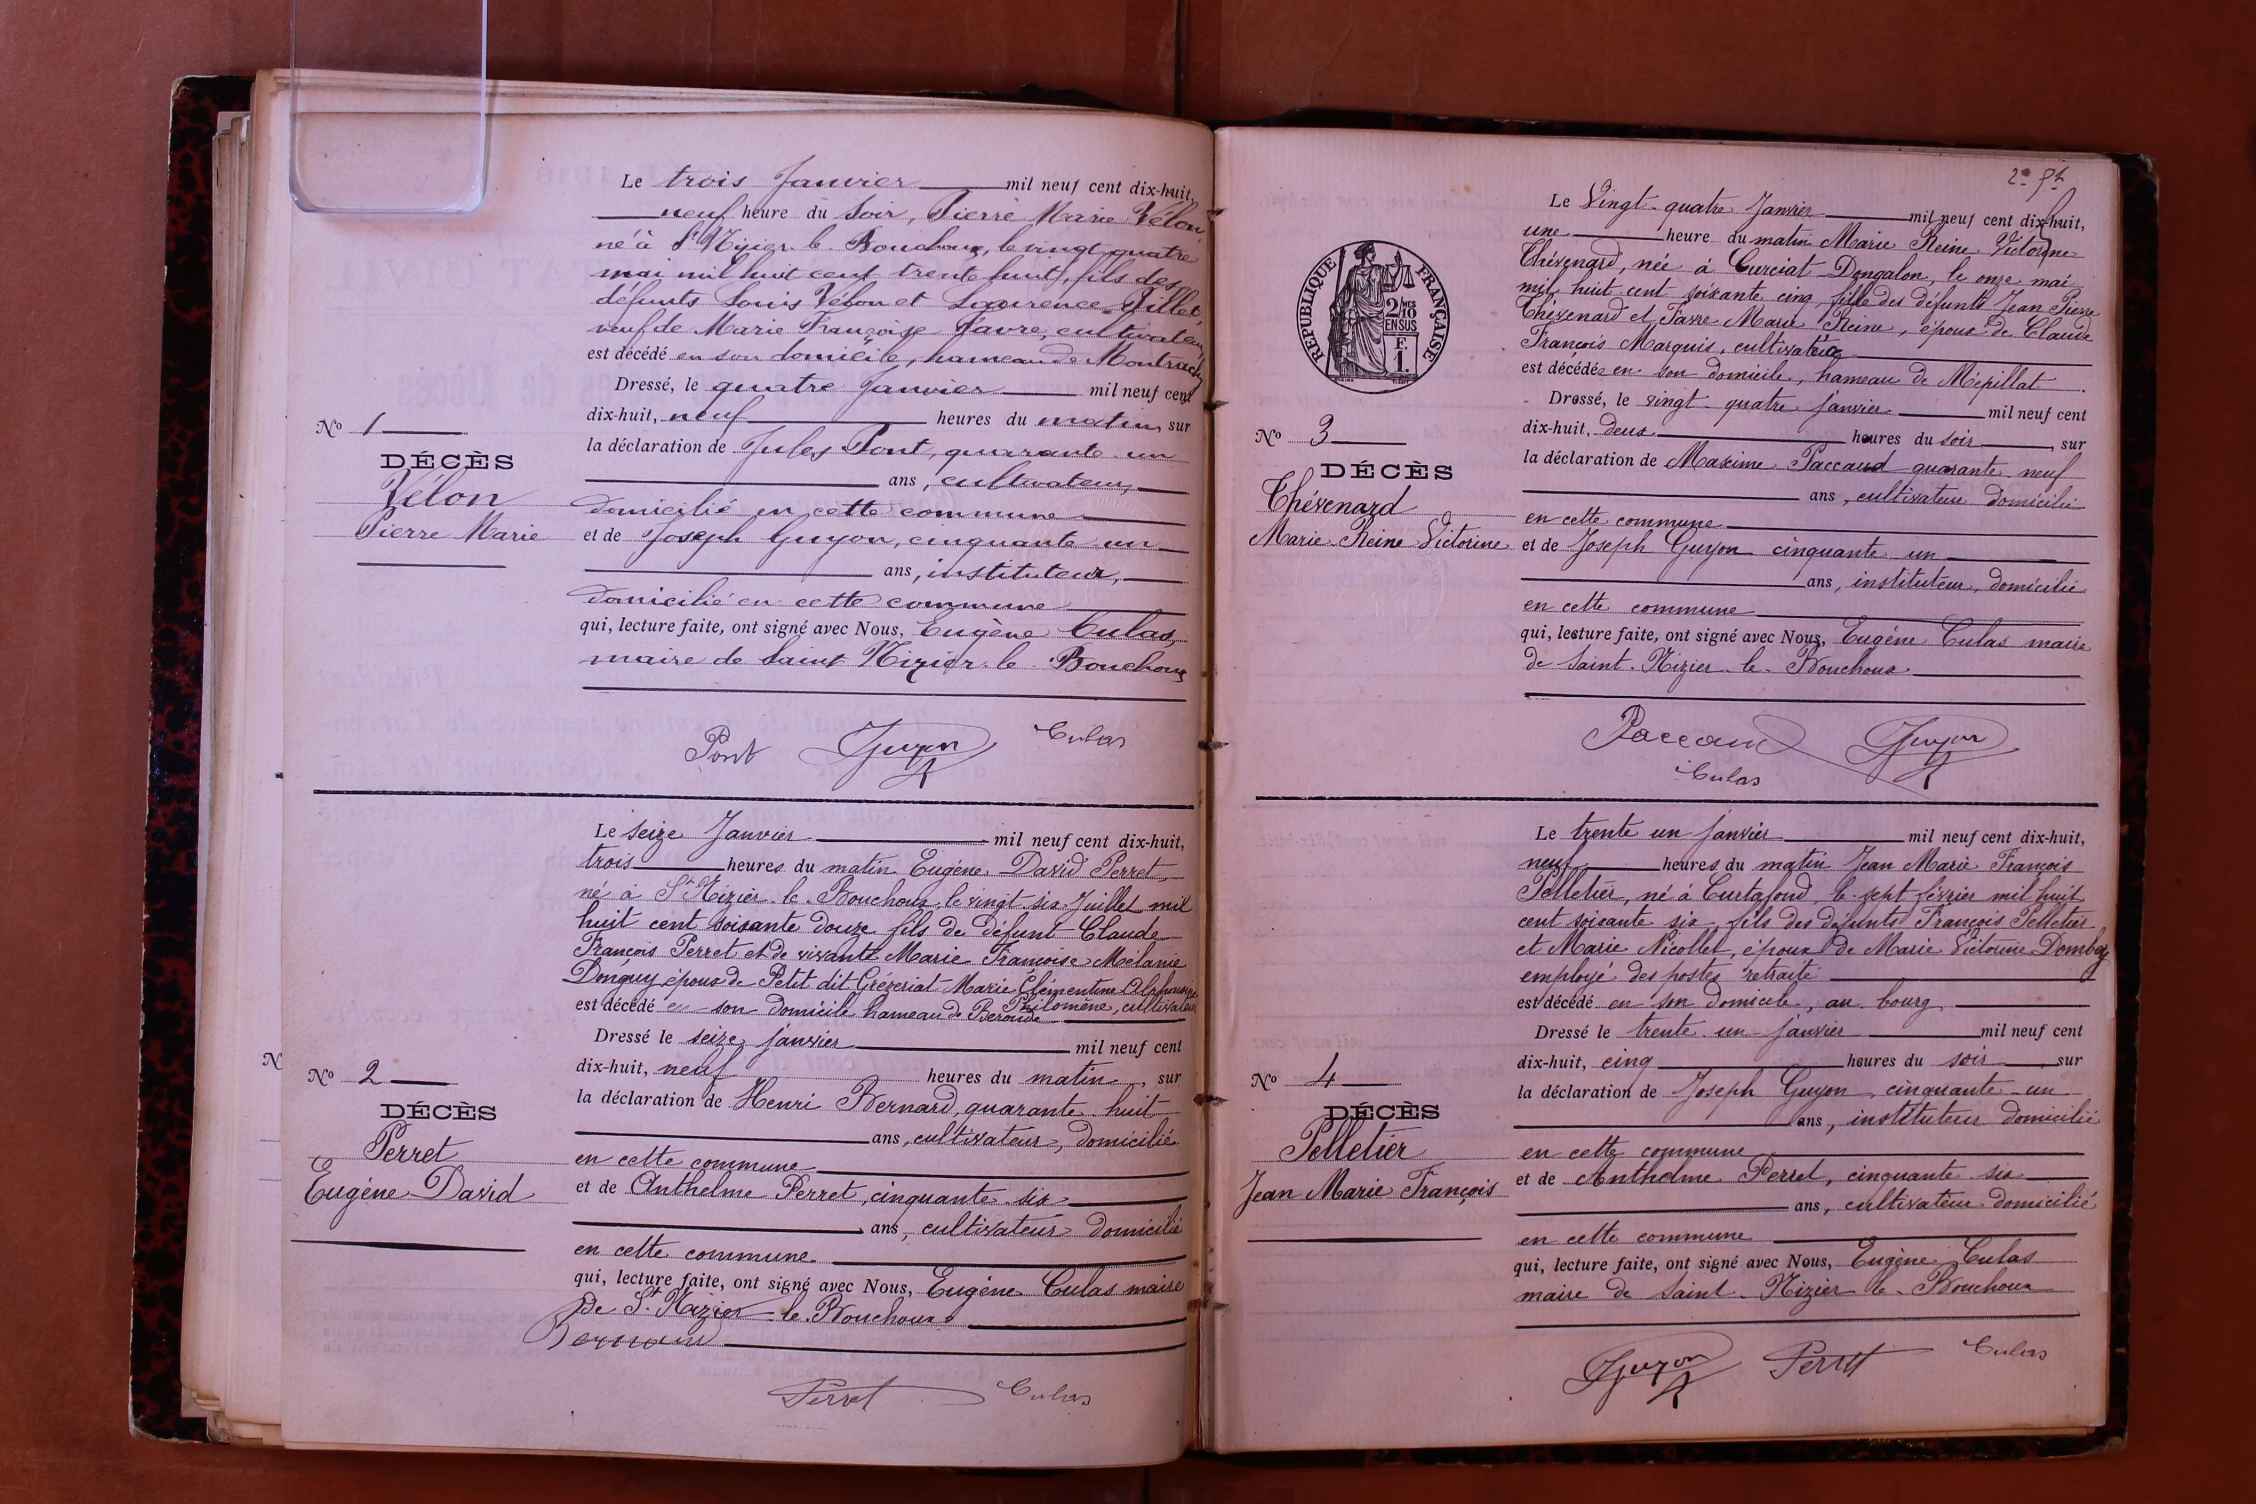 Le trois Janvier mil neuf cent dix-huit,
neuf heure du soir, Pierre Marie Vélon
né à St Nizier-le-Bouchoux, le vingt-quatre
mai mil huit cent trente huit, fils des
défunts Louis Vélon et Laurence
veuf de Marie Françoise Favre, cultivateur
est décédé en son domicile, hameau de
Dressé, le quatre Janvier mil neuf cent
dix-huit, neuf heures du matin sur
la déclaration de Jules Pont, quarante-un
ans, cultivateur,
domicilié en cette commune
et de Joseph Guyon, cinquante-un
ans, instituteur,
domicilié en cette commune
qui, lecture faite, ont signé avec Nous, Eugène Culas,
maire de Saint-Nizier-le-Bouchoux
No 1
DÉCÈS
Vélon
Pierre Marie
Pont Guyon Culas
Le seize Janvier mil neuf cent dix-huit,
trois heures du matin Eugène David Perret,
né à St Nizier-le-Bouchoux, le vingt-six Juillet mil
huit cent soixante douze fils de défunt Claude
François Perret et de vivante Marie Françoise Mélanie
Donguy époux de Petit dit Grézeriat Marie Clémentine Alphonsine
Philomène, cultivateur
est décédé en son domicile hameau de Beroude
Dressé le seize janvier mil neuf cent
dix-huit, neuf heures du matin, sur
la déclaration de Henri Bernard, quarante-huit
ans, cultivateur, domicilié
en cette commune
et de Anthelme Perret, cinquante-six
ans, cultivateur domicilié
en cette commune
qui, lecture faite, ont signé avec Nous, Eugène Culas maire
de St-Nizier-le-Bouchoux
No 2
DÉCÈS
Perret
Eugène David
Bernard
Perret Culas
N
Le Vingt-quatre Janvier mil neuf cent dix-huit,
une heure du matin Marie Reine Victorine
Thévenard, née à Curciat-Dongalon, le onze mai
mil huit cent soixante cinq, fille des défunts Jean Pierre
Thévenard et Favre Marie Reine, épouse de Claude
François Marquis, cultivatrice
est décédée en son domicile, hameau de Mépillat
Dressé, le vingt-quatre janvier mil neuf cent
dix-huit, deux heures du soir, sur
la déclaration de Maxime Paccaud quarante-neuf
ans, cultivateur domicilié
en cette commune
et de Joseph Guyon cinquante un
ans, instituteur, domicilié
en cette commune
qui, lecture faite, ont signé avec Nous, Eugène Culas maire
de Saint-Nizier-le-Bouchoux
RÉPUBLIQUE FRANÇAISE
2/10 MES
EN SUS
F.
1.
No 3
DÉCÈS
Thévenard
Marie Reine Victorine
Paccaud Guyon
Culas
Le trente un janvier mil neuf cent dix-huit,
neuf heures du matin Jean Marie François
Pelletier, né à Curtafond, le sept février mil huit
cent soixante six, fils des défunts François Pelletier
et Marie Nicollet, époux de Marie Victorine Dombey
employé des postes retraité
est décédé en son domicile, au bourg
Dressé le trente-un janvier mil neuf cent
dix-huit, cinq heures du soir, sur
la déclaration de Joseph Guyon, cinquante-un
ans, instituteur domicilié
en cette commune
et de Anthelme Perret, cinquante six
ans, cultivateur domicilié
en cette commune
qui, lecture faite, ont signé avec Nous, Eugène Culas
maire de Saint-Nizier-le-Bouchoux
No 4
DÉCÈS
Pelletier
Jean Marie François
Guyon Perret Culas